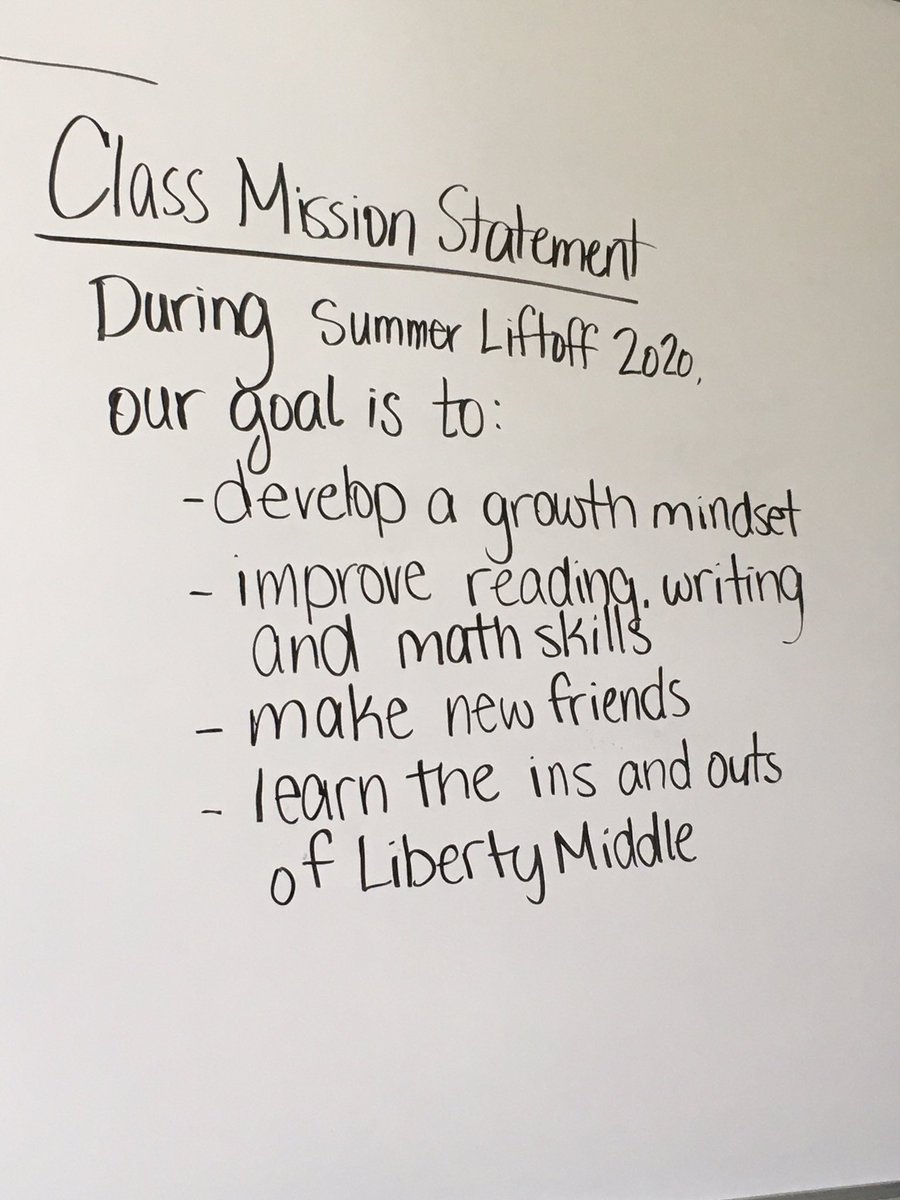 Class Mission Statement
During Summer Liftoff 2020,
our goal is to:
- develop a growth mindset
- improve reading, writing
and math skills
- make new friends
- learn the ins and outs
of Liberty Middle